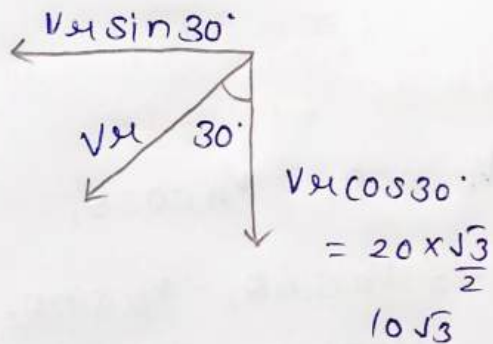 Vr sin 30°
Vr
30°
Vr cos 30°
= 20 × √3/2
10√3